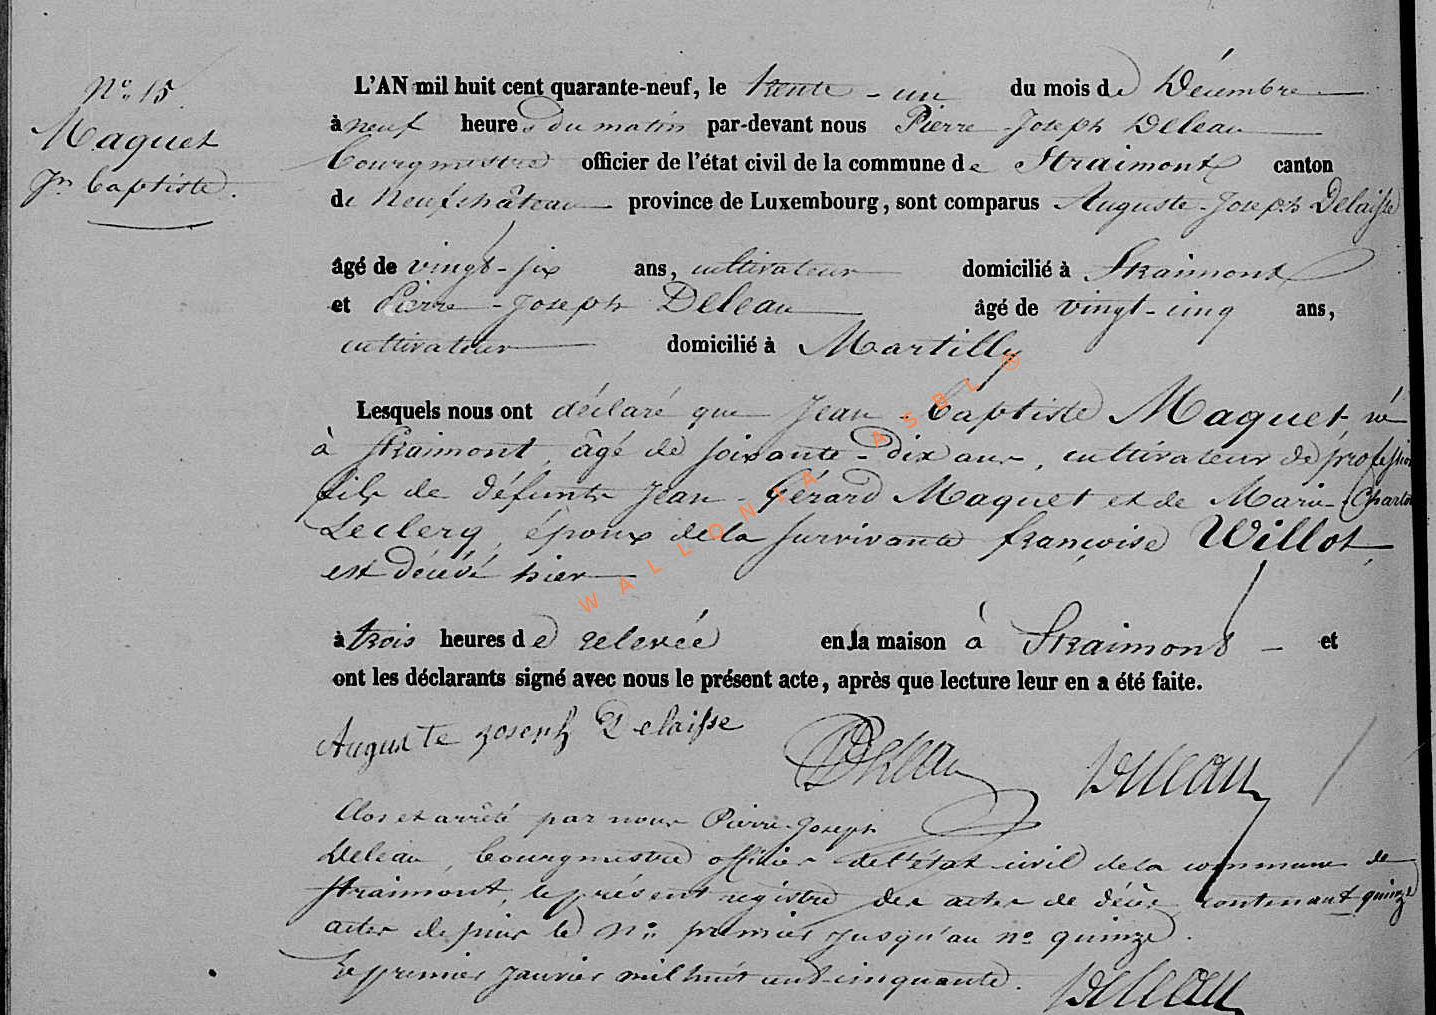 N° 15
Maquet
Jn Baptiste.
L'AN mil huit cent quarante-neuf, le trente-un du mois de Décembre
à neuf heures du matin par-devant nous Pierre-Joseph Deleau
Bourgmestre officier de l'état civil de la commune de Straimont canton
de Neufchâteau province de Luxembourg, sont comparus Auguste-Joseph Delaisse
âgé de vingt-six ans, cultivateur domicilié à Straimont
et Pierre-Joseph Deleau âgé de vingt-cinq ans,
cultivateur domicilié à Martilly
Lesquels nous ont déclaré que Jean-Baptiste Maquet, né
à Straimont, âgé de soixante-dix ans, cultivateur de profession
fils de défunts Jean-Gérard Maquet et de Marie-Charlo
Leclerq, époux de la survivante françoise Willot,
est décédé hier
à trois heures de relevée en la maison à Straimont - et
ont les déclarants signé avec nous le présent acte, après que lecture leur en a été faite.
Auguste Joseph Delaisse
Deleau Deleau
Clos et arrêté par nous Pierre-Joseph
Deleau, bourgmestre officier de l'état civil de la commune de
Straimont, le présent registre des actes de décès contenant quinze
actes depuis le n° premier jusqu'au n° quinze.
Le premier Janvier mil huit cent cinquante.
Deleau
WALLONIA ASBL ®